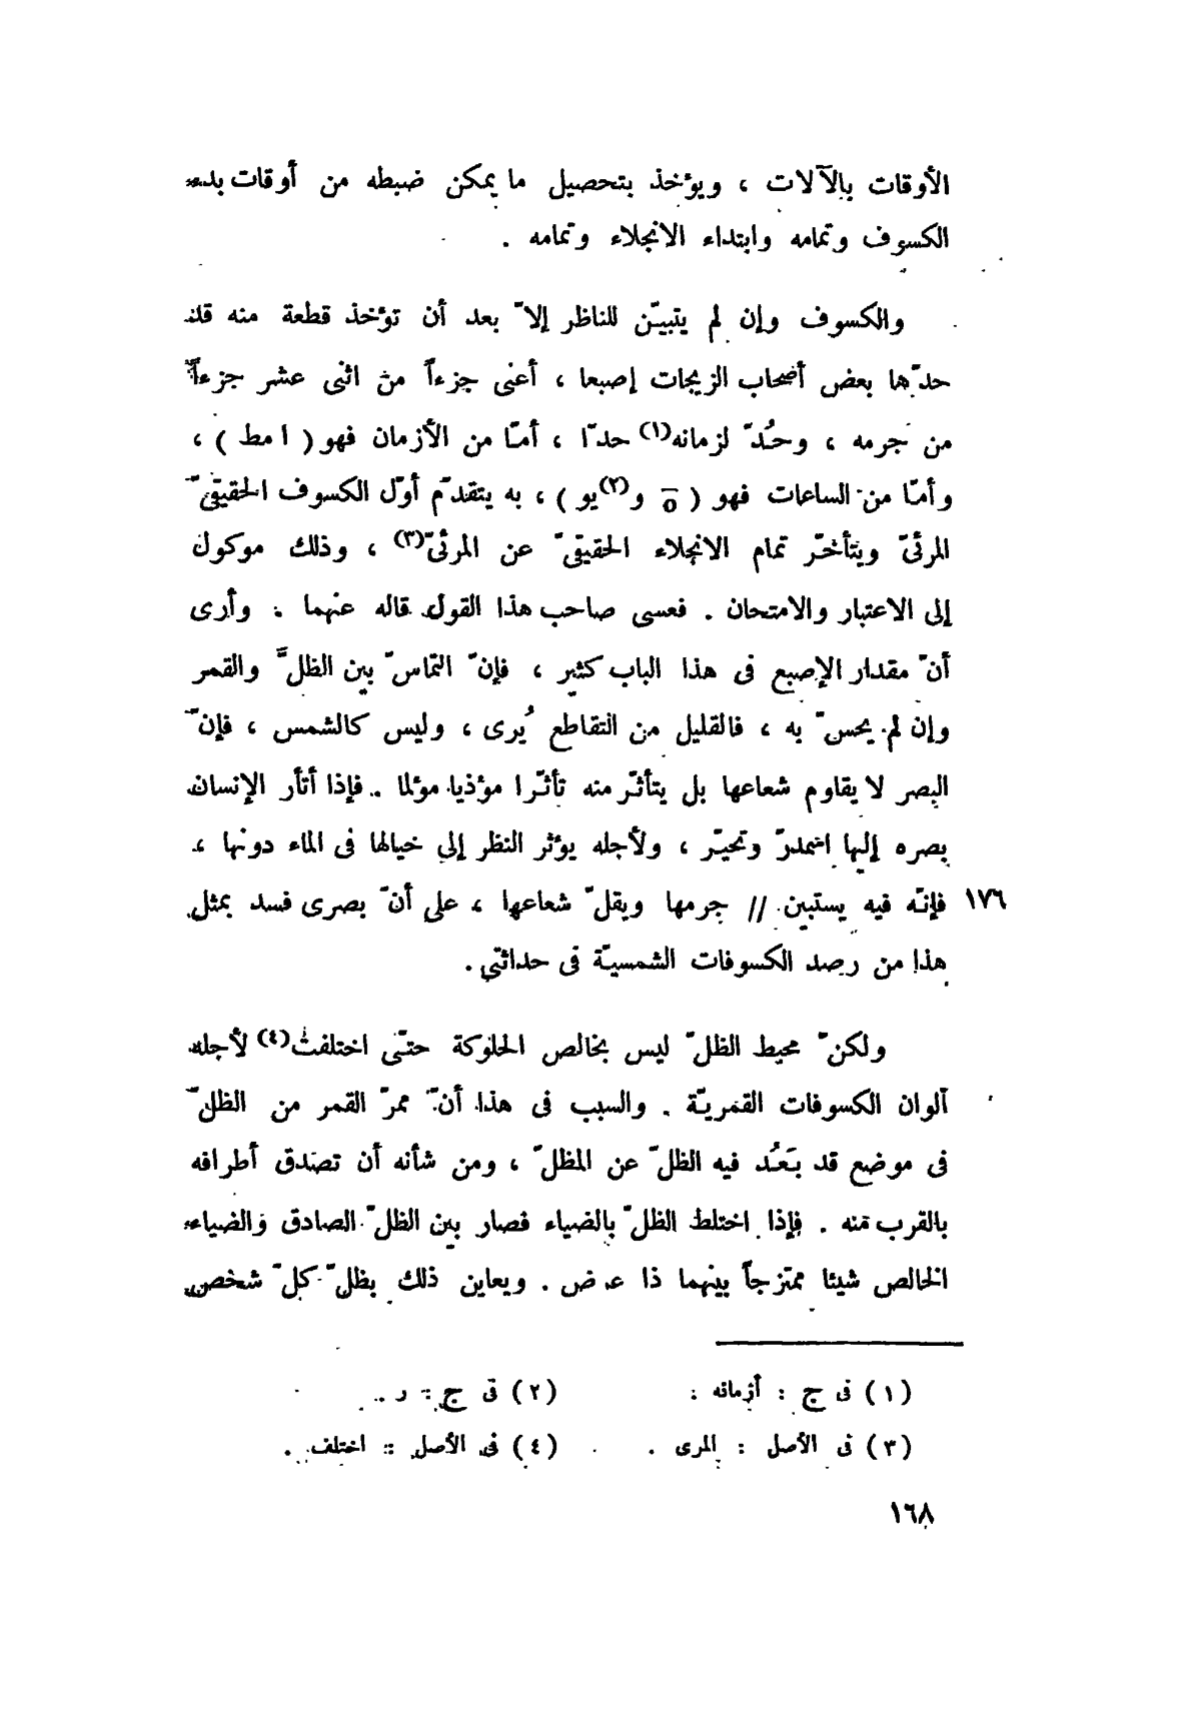 الأوقات بالآلات ، ويؤخذ بتحصيل ما يمكن ضبطه من أوقات بدء
الكسوف وتمامه وابتداء الانجلاء وتمامه .
والكسوف وإن لم يتبيّن للناظر إلاّ بعد أن تؤخذ قطعة منه قد
حدّها بعض أصحاب الزيجات إصبعا ، أعنى جزءاً من اثنى عشر جزءاً
من جرمه ، وحُدّ لزمانه(١) حدّا ، أمّا من الأزمان فهو ( ا مط ) ،
وأمّا من الساعات فهو ( o̅ و(٢)يو ) ، به يتقدّم أوّل الكسوف الحقيقىّ
المرئىّ ويتأخّر تمام الانجلاء الحقيقىّ عن المرئىّ(٣) ، وذلك موكول
إلى الاعتبار والامتحان . فعسى صاحب هذا القول قاله عنهما . وأرى
أنّ مقدار الإصبع فى هذا الباب كثير ، فإنّ التماسّ بين الظلّ والقمر
وإن لم يحسّ به ، فالقليل من التقاطع يُرى ، وليس كالشمس ، فإنّ
البصر لا يقاوم شعاعها بل يتأثّر منه تأثّرا مؤذيا مؤلما . فإذا أتأر الإنسان
بصره إليها اضمدرّ وتحيّر ، ولأجله يؤثر النظر إلى خيالها فى الماء دونها ،
١٧٦ فإنّه فيه يستبين // جرمها ويقلّ شعاعها ، على أنّ بصرى فسد بمثل
هذا من رصد الكسوفات الشمسيّة فى حداثتى .
ولكنّ محيط الظلّ ليس بخالص الحلوكة حتّى اختلفت(٤) لأجله
ألوان الكسوفات القمريّة . والسبب فى هذا أنّ ممرّ القمر من الظلّ
فى موضع قد بَعُد فيه الظلّ عن المظلّ ، ومن شأنه أن تصدق أطرافه
بالقرب منه . فإذا اختلط الظلّ بالضياء فصار بين الظلّ الصادق والضياء
الخالص شيئا ممتزجاً بينهما ذا عرض . ويعاين ذلك بظلّ كلّ شخص
(١) فى ج : أزمانه . (٢) فى ج : ر .
(٣) فى الأصل : المرى . (٤) فى الأصل : اختلف .
١٦٨